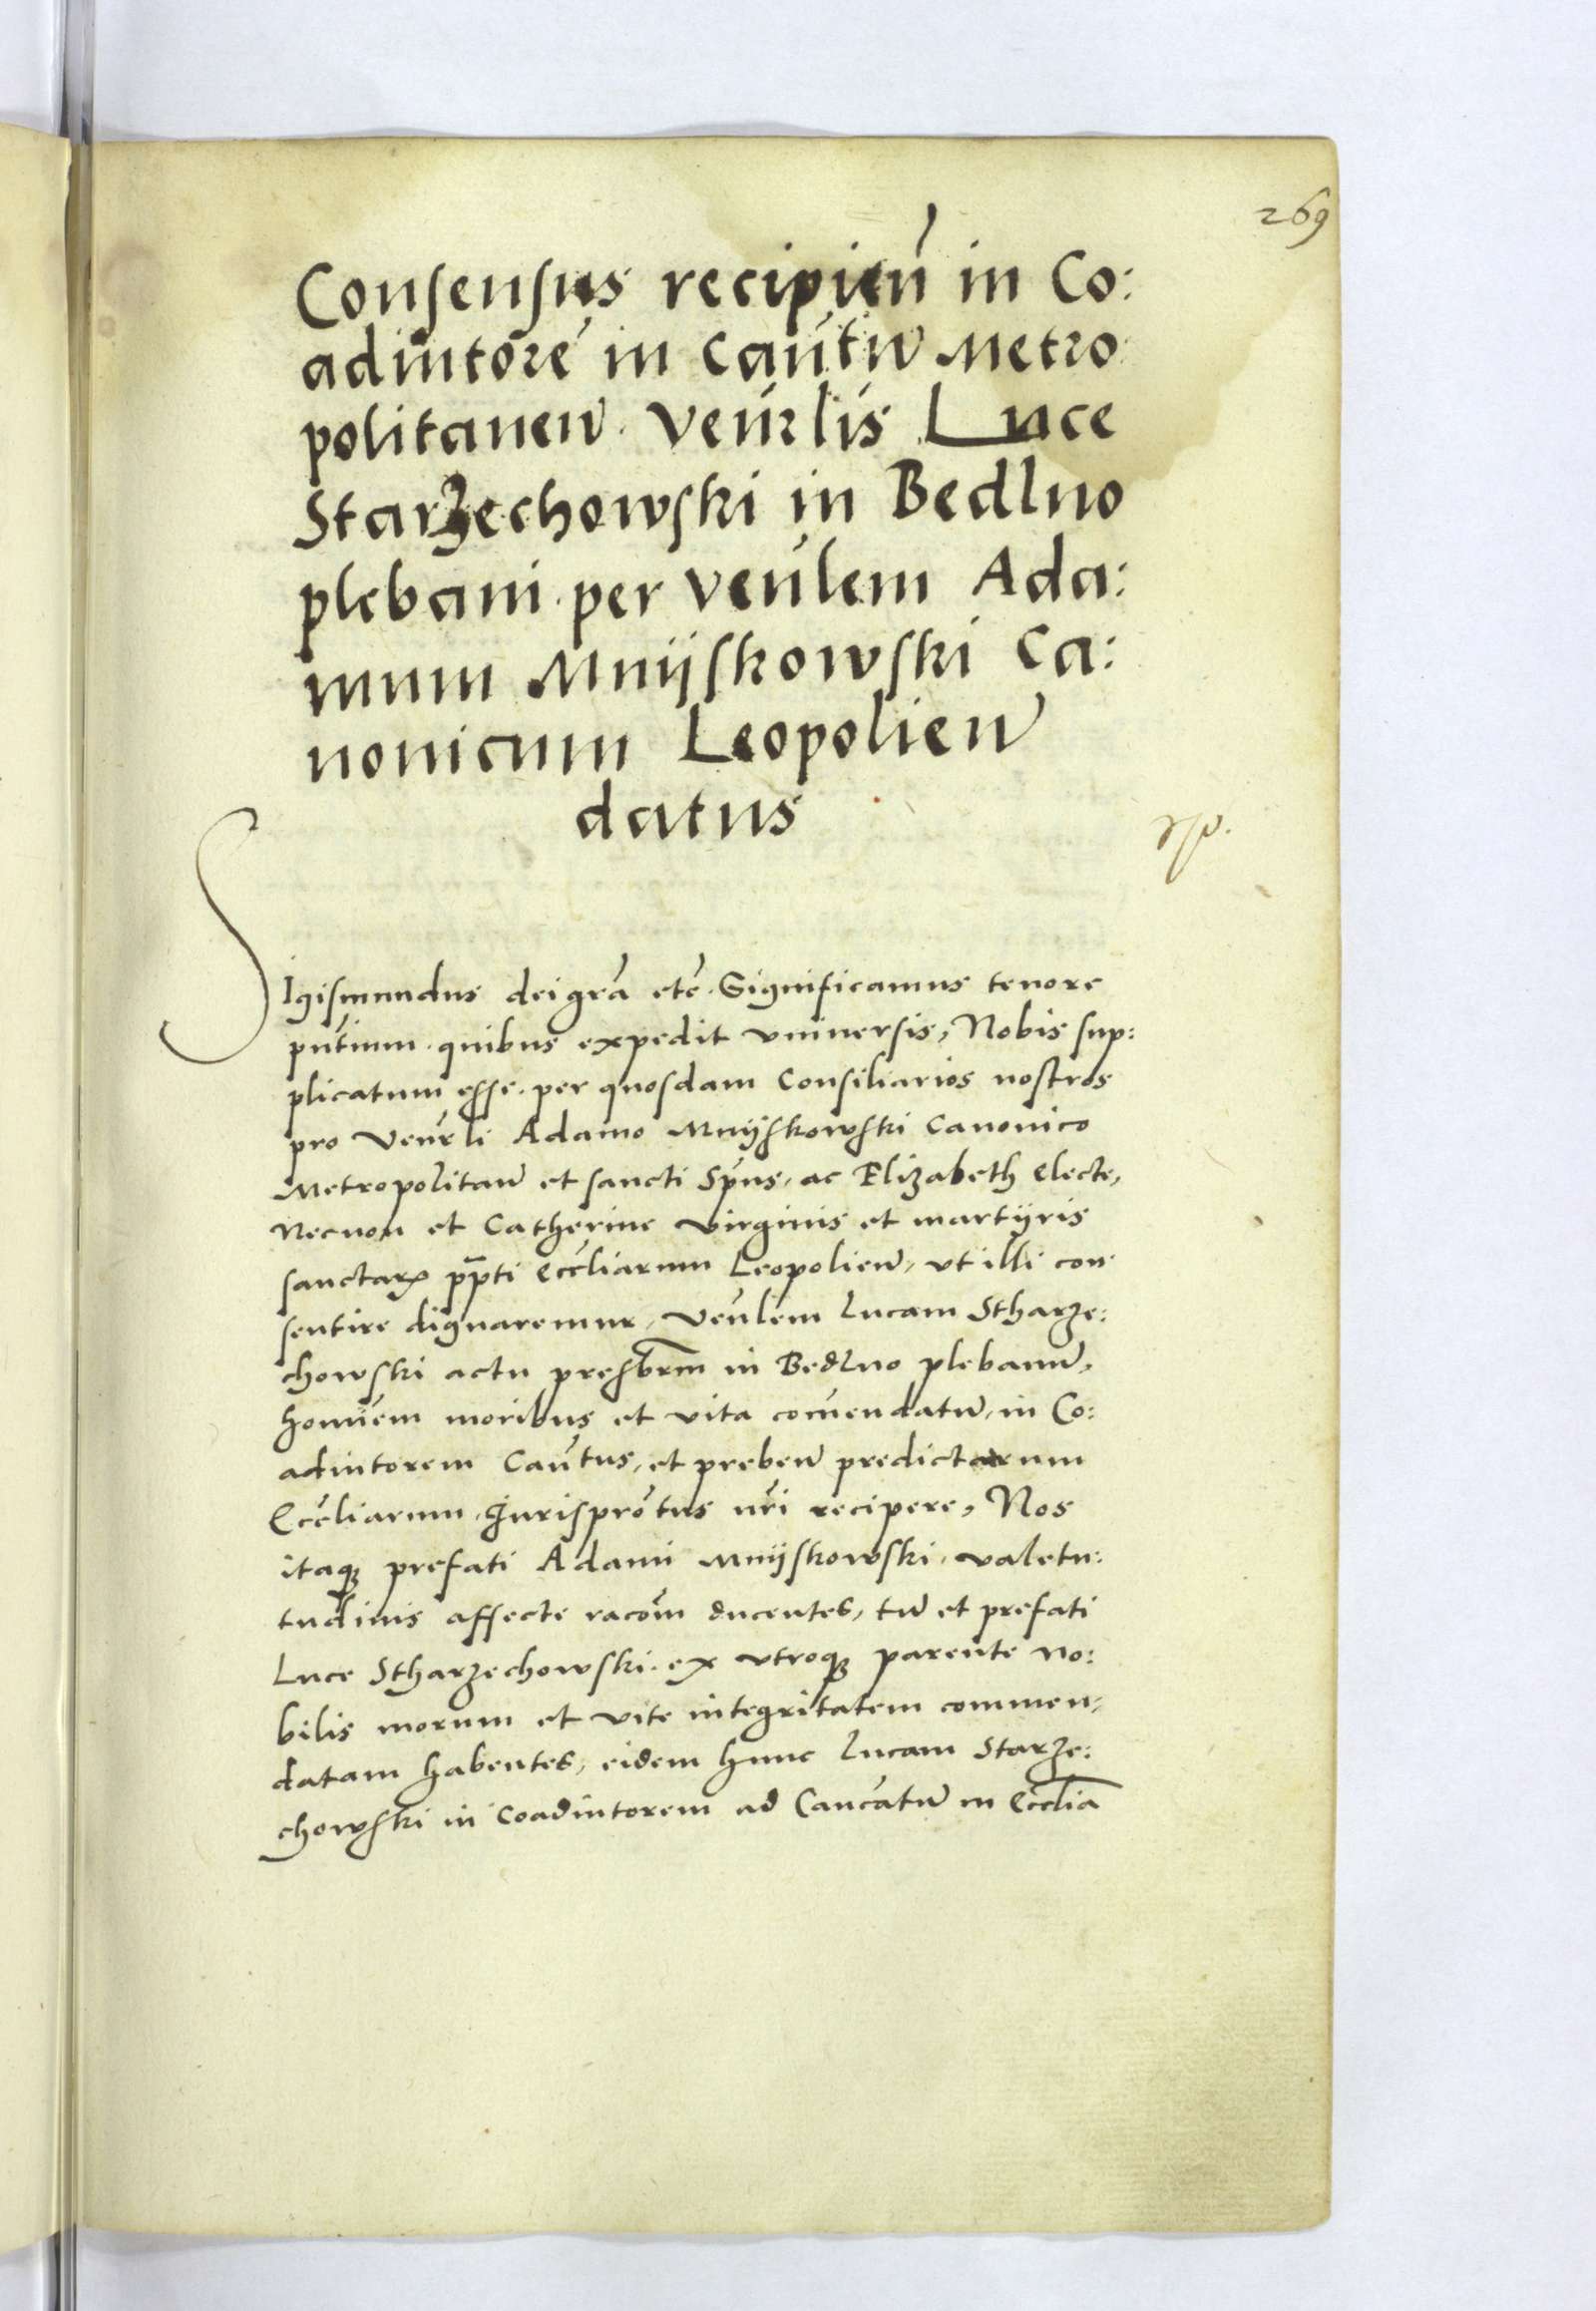 269
Consensus recipień in Co:
adiutoré in Cańtũ Metro
politaneñ. Veńrlis Luce
Starzechowski in Bedlno
plebani. per Veńlem Ada:
mum Mnijskowski Ca:
nonicum Leopolieñ
datus
Sigismundus dei gr̃a etč. Significamus tenore
pñtium. quibus expedit vniuersis, Nobis sup:
plicatum esse. per quosdam Consiliarios nostros
pro Veńrli Adamo Mnijskowski Canonico
Metropolitañ et sancti Sp̃us, ac Elizabeth Electe,
Necnon et Catherine Virginis et martijris
sanctarꝝ pp̃ti Eccl̃iarum Leopolieñ, vt illi con
sentire dignaremur, Veńlem Lucam Stharze:
chowski actu presbr̃m in Bedlno plebanũ,
homiẽm moribus et vita com̃endatũ, in Co:
adiutorem Cańtus, et prebeñ predictarum
Eccl̃iarum, Jurisprõtus nr̃i recipere, Nos
itaqꝫ prefati Adami Mnijskowski, valetu:
tudinis affecte racõm ducentes, tũ et prefati
Luce Stharzechowski. ex vtroqꝫ parente no:
bilis morum et vite integritatem commen,
datam habentes, eidem hunc Lucam Starze:
chowski in Coadiutorem ad Cancatũ in Eccl̃ia